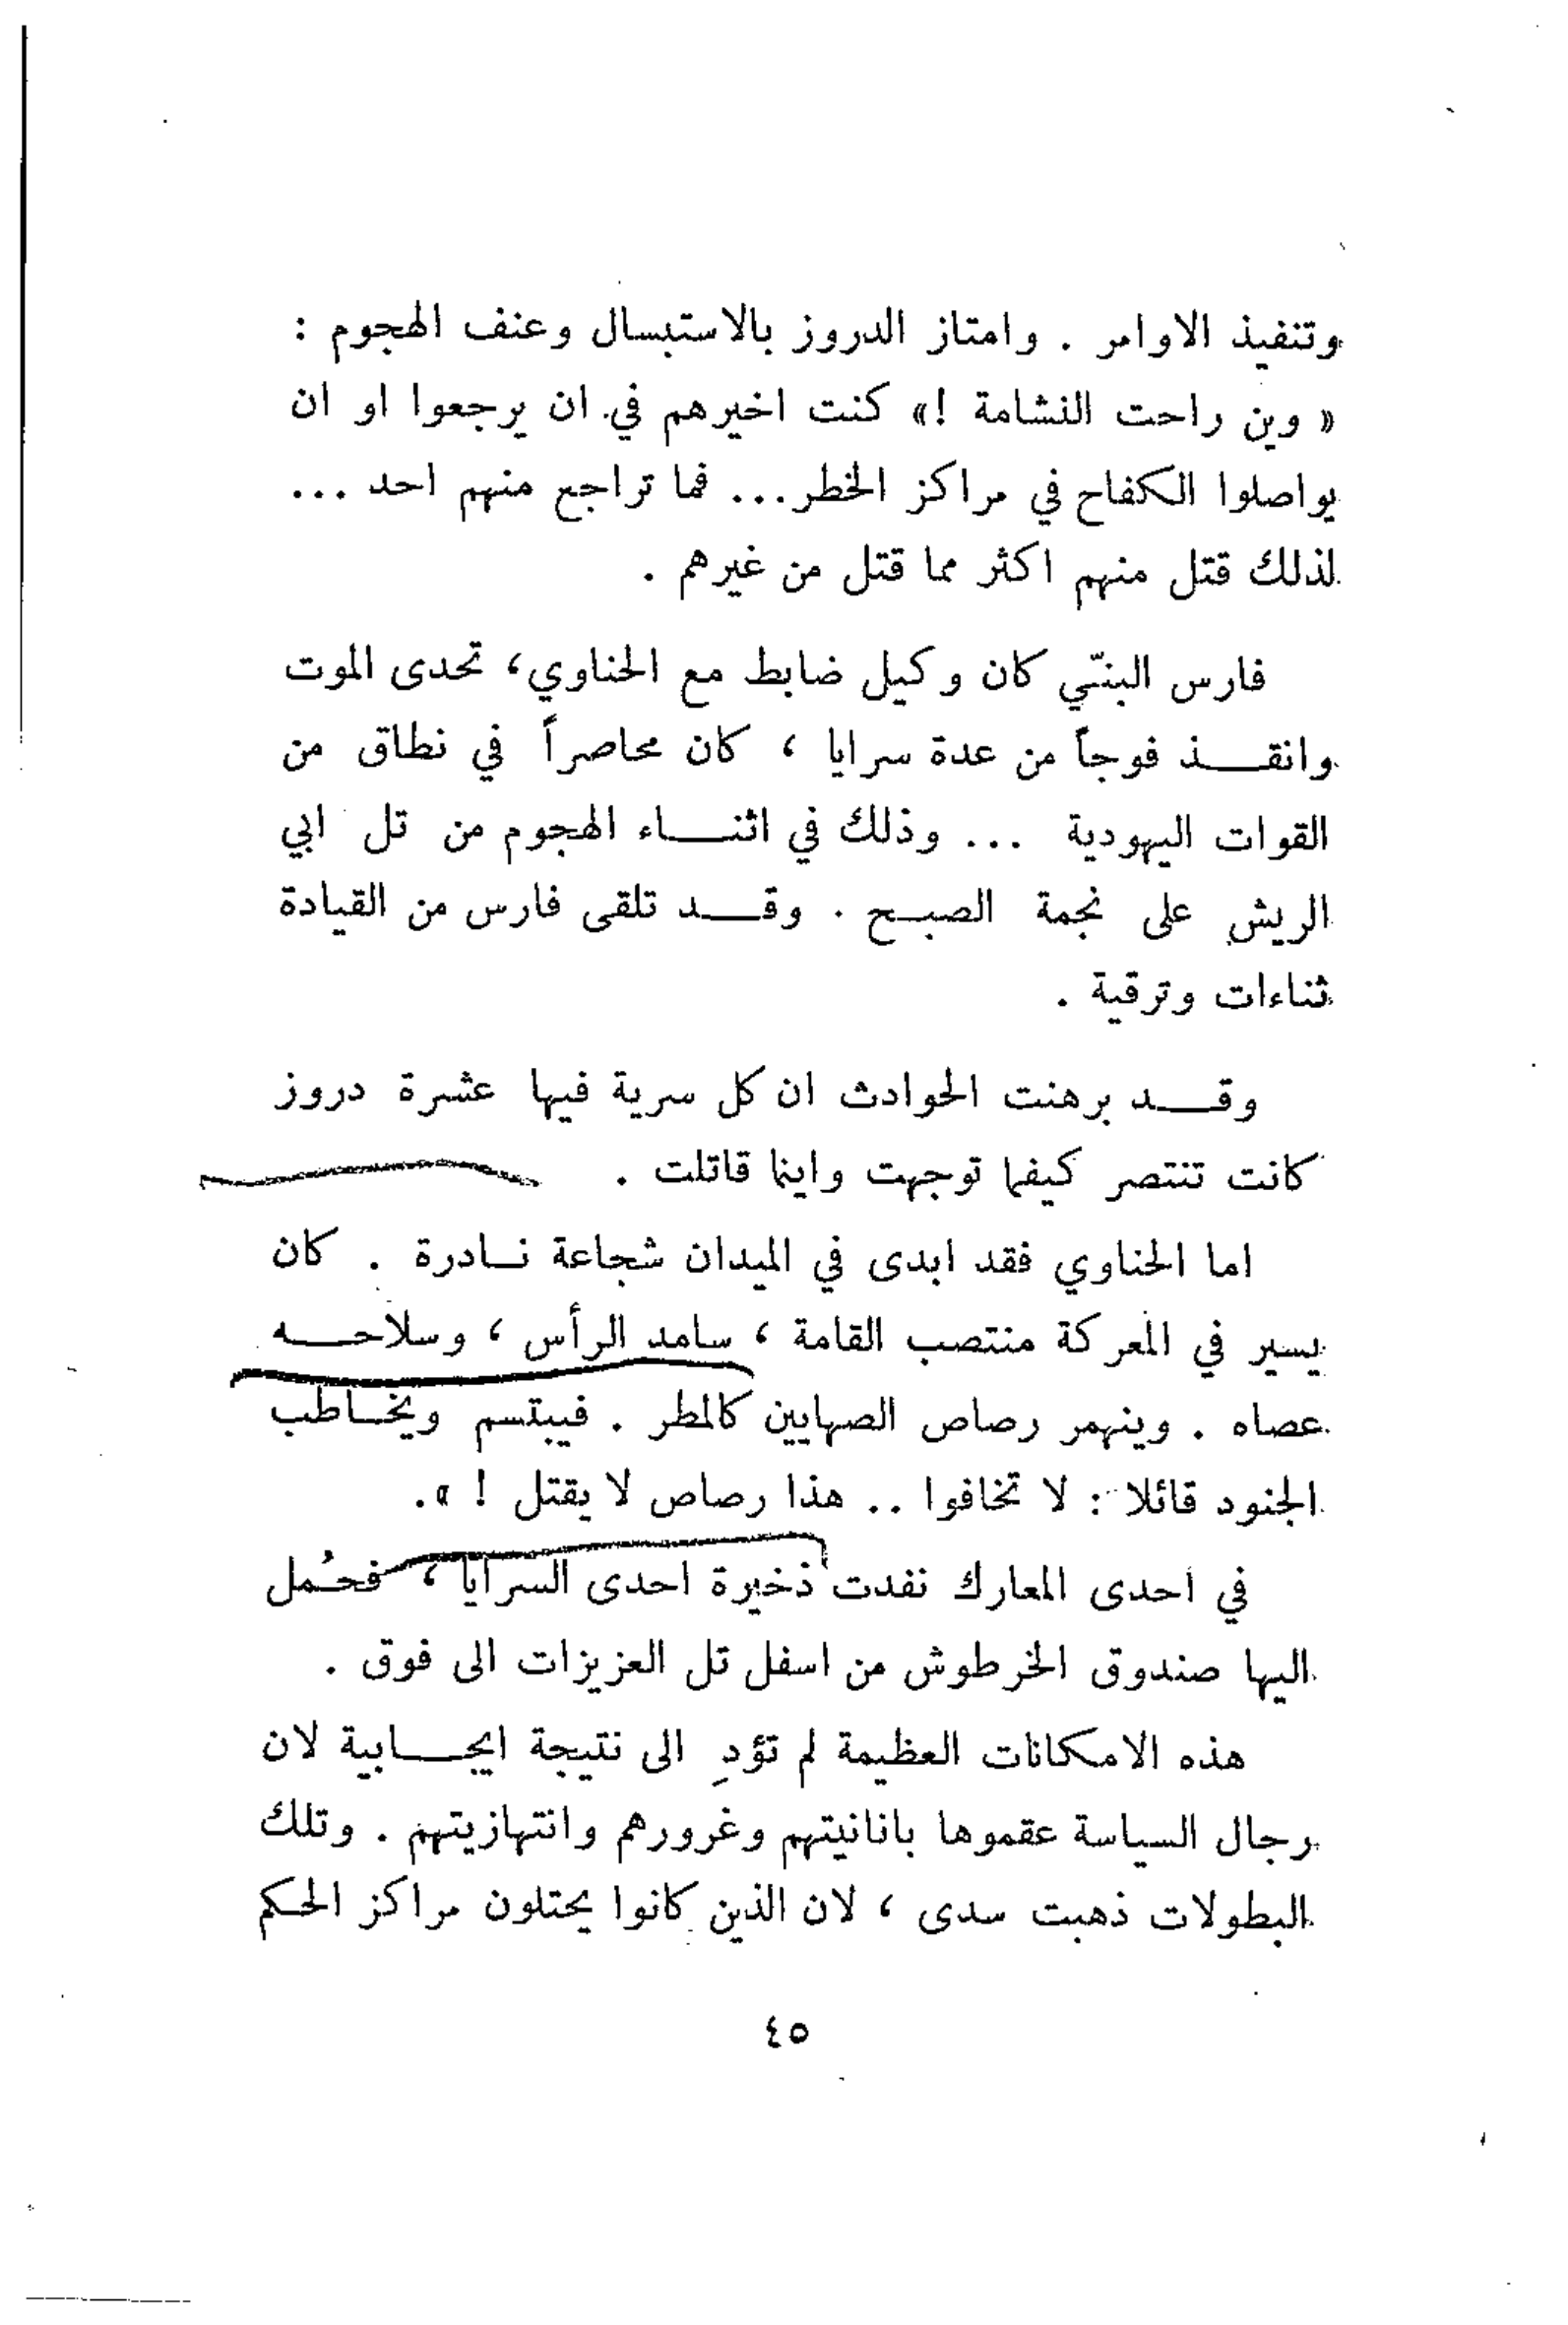 وتنفيذ الاوامر . وامتاز الدروز بالاستبسال وعنف الهجوم :
« وين راحت النشامة !» كنت اخيرهم في ان يرجعوا او ان
يواصلوا الكفاح في مراكز الخطر... فما تراجع منهم احد ...
لذلك قتل منهم اكثر مما قتل من غيرهم .
فارس البنّي كان وكيل ضابط مع الحناوي، تحدى الموت
وانقـــذ فوجاً من عدة سرايا ، كان محاصراً في نطاق من
القوات اليهودية ... وذلك في اثنـــاء الهجوم من تل ابي
الريش على نجمة الصبـح . وقـــد تلقى فارس من القيادة
ثناءات وترقية .
وقـــد برهنت الحوادث ان كل سرية فيها عشرة دروز
كانت تنتصر كيفما توجهت واينما قاتلت .
اما الحناوي فقد ابدى في الميدان شجاعة نـادرة . كان
يسير في المعركة منتصب القامة ، سامد الرأس ، وسلاحـــه
عصاه . وينهمر رصاص الصهايين كالمطر . فيبتسم ويخـاطب
الجنود قائلا : لا تخافوا .. هذا رصاص لا يقتل ! ».
في احدى المعارك نفدت ذخيرة احدى السرايا ، فحُمل
اليها صندوق الخرطوش من اسفل تل العزيزات الى فوق .
هذه الامكانات العظيمة لم تؤدِ الى نتيجة ايجـــابية لان
رجال السياسة عقموها بانانيتهم وغرورهم وانتهازيتهم . وتلك
البطولات ذهبت سدى ، لان الذين كانوا يحتلون مراكز الحكم
٤٥